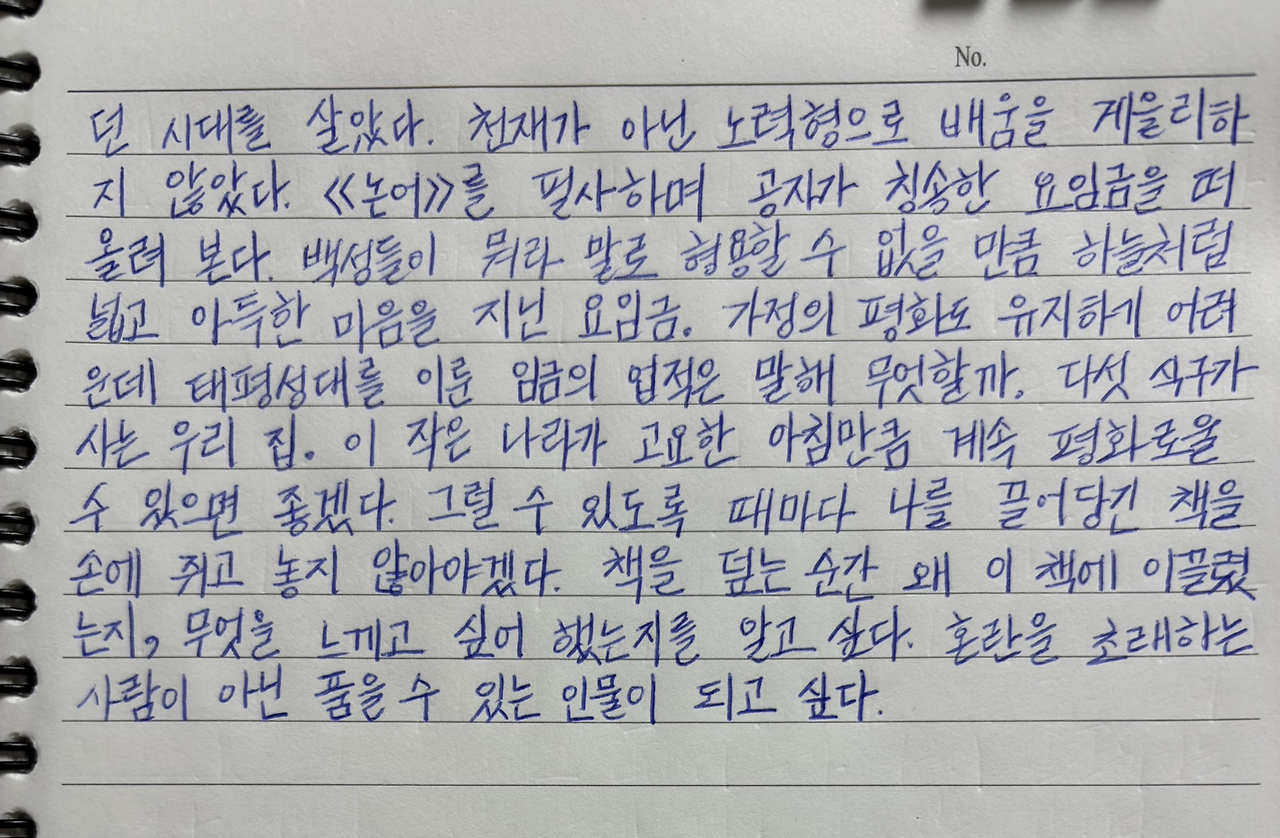 No.
던 시대를 살았다. 천재가 아닌 노력형으로 배움을 게을리하
지 않았다. 《논어》를 필사하며 공자가 칭송한 요임금을 떠
올려 본다. 백성들이 뭐라 말로 형용할 수 없을 만큼 하늘처럼
넓고 아득한 마음을 지닌 요임금. 가정의 평화도 유지하기 어려
운데 태평성대를 이룬 임금의 업적은 말해 무엇할까. 다섯 식구가
사는 우리 집. 이 작은 나라가 고요한 아침만큼 계속 평화로울
수 있으면 좋겠다. 그럴 수 있도록 때마다 나를 끌어당긴 책을
손에 쥐고 놓지 않아야겠다. 책을 덮는 순간 왜 이 책에 이끌렸
는지, 무엇을 느끼고 싶어 했는지를 알고 싶다. 혼란을 초래하는
사람이 아닌 품을 수 있는 인물이 되고 싶다.